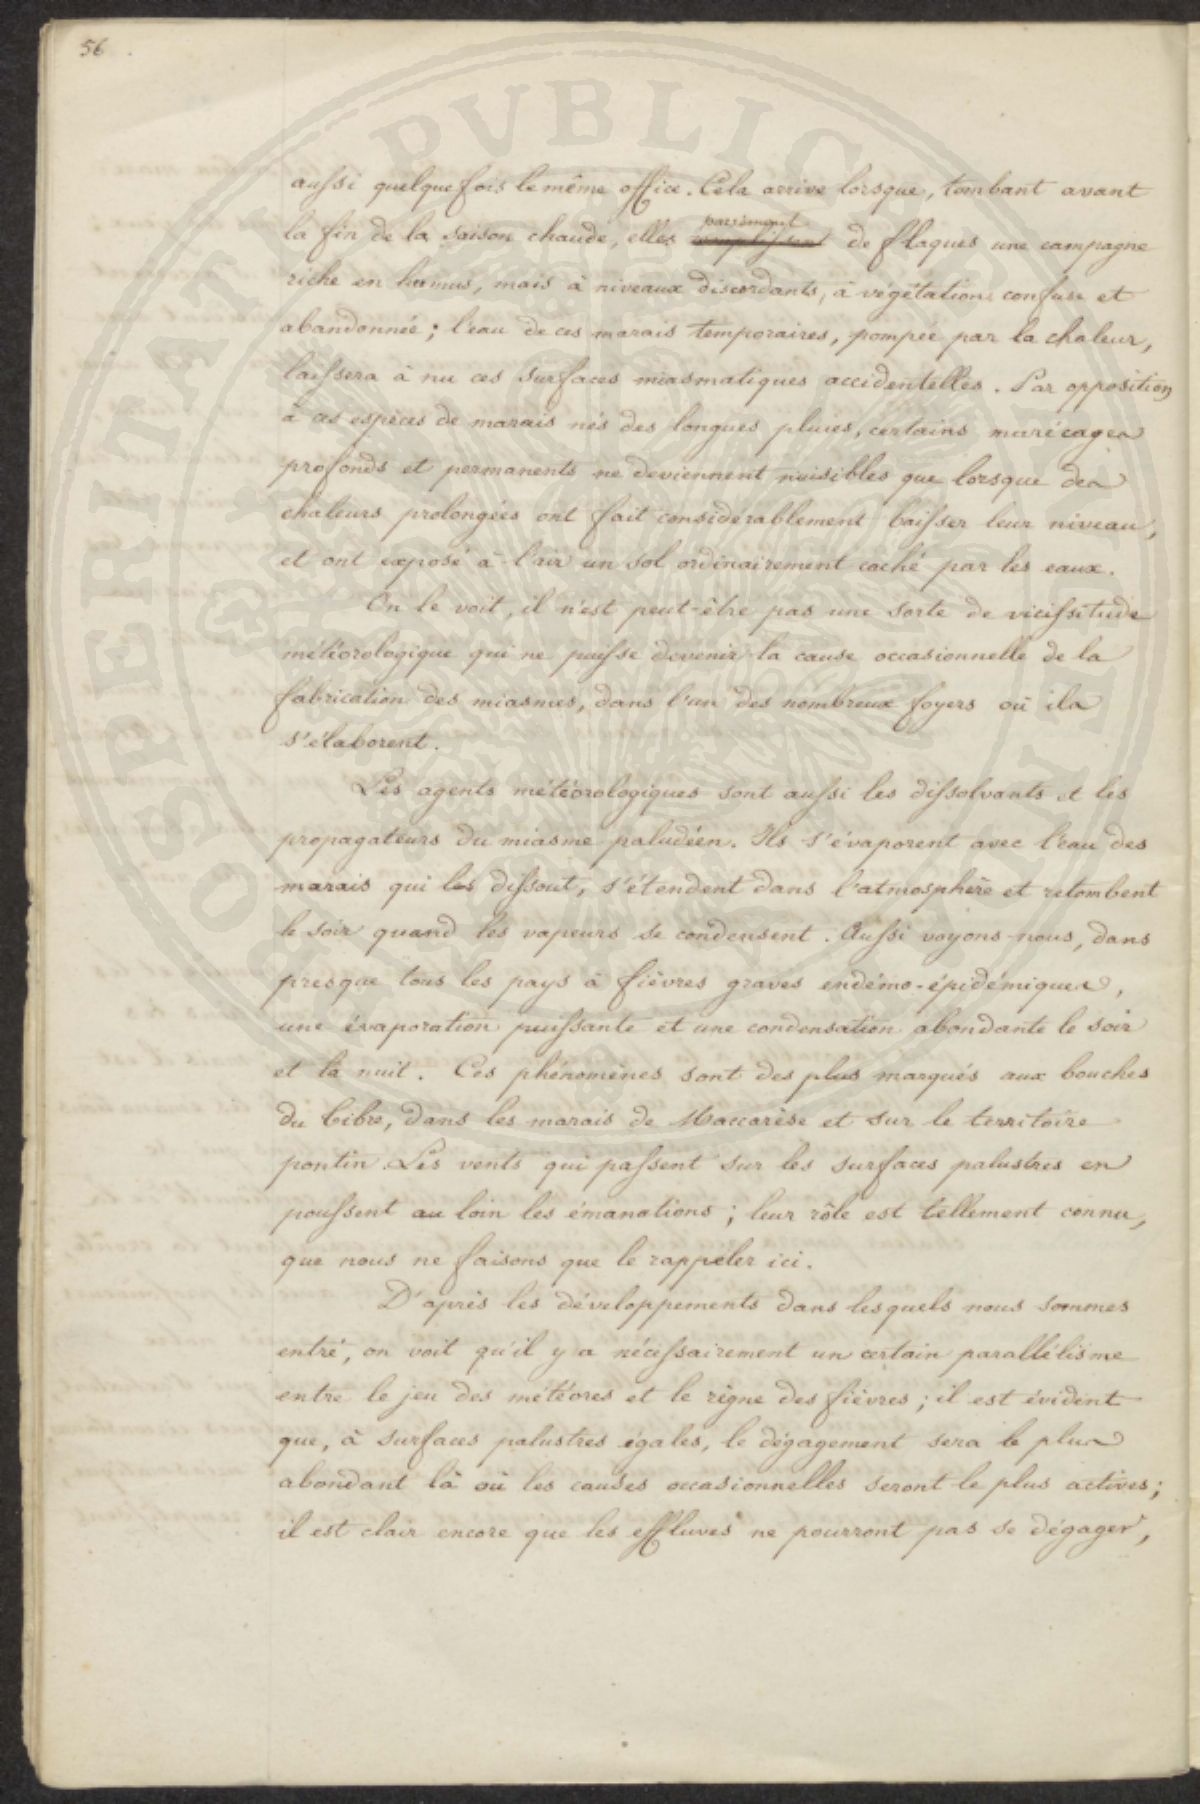 56
aussi quelquefois le même office. Cela arrive lorsque, tombant avant
la fin de la saison chaude, elles parsèment de flaques une campagne
riche en humus, mais à niveaux discordants, à végétation confuse et
abandonnée ; l'eau de ces marais temporaires, pompée par la chaleur,
laissera à nu ces surfaces miasmatiques accidentelles. Par opposition
à ces espèces de marais nés des longues pluies, certains marécages
profonds et permanents ne deviennent nuisibles que lorsque des
chaleurs prolongées ont fait considérablement baisser leur niveau,
et ont exposé à l'air un sol ordinairement caché par les eaux.
On le voit, il n'est peut-être pas une sorte de vicissitude
météorologique qui ne puisse devenir la cause occasionnelle de la
fabrication des miasmes, dans l'un des nombreux foyers où ils
s'élaborent.
Les agents météorologiques sont aussi les dissolvants et les
propagateurs du miasme paludéen. Ils s'évaporent avec l'eau des
marais qui les dissout, s'étendent dans l'atmosphère et retombent
le soir quand les vapeurs se condensent. Aussi voyons-nous, dans
presque tous les pays à fièvres graves endémo-épidémiques,
une évaporation puissante et une condensation abondante le soir
et la nuit. Ces phénomènes sont des plus marqués aux bouches
du Tibre, dans les marais de Maccarèse et sur le territoire
pontin. Les vents qui passent sur les surfaces palustres en
poussent au loin les émanations ; leur rôle est tellement connu,
que nous ne faisons que le rappeler ici.
D'après les développements dans lesquels nous sommes
entré, on voit qu'il y a nécessairement un certain parallélisme
entre le jeu des météores et le règne des fièvres ; il est évident
que, à surfaces palustres égales, le dégagement sera le plus
abondant là où les causes occasionnelles seront le plus actives ;
il est clair encore que les effluves ne pourront pas se dégager,
PROSPERITATI PVBLICAE